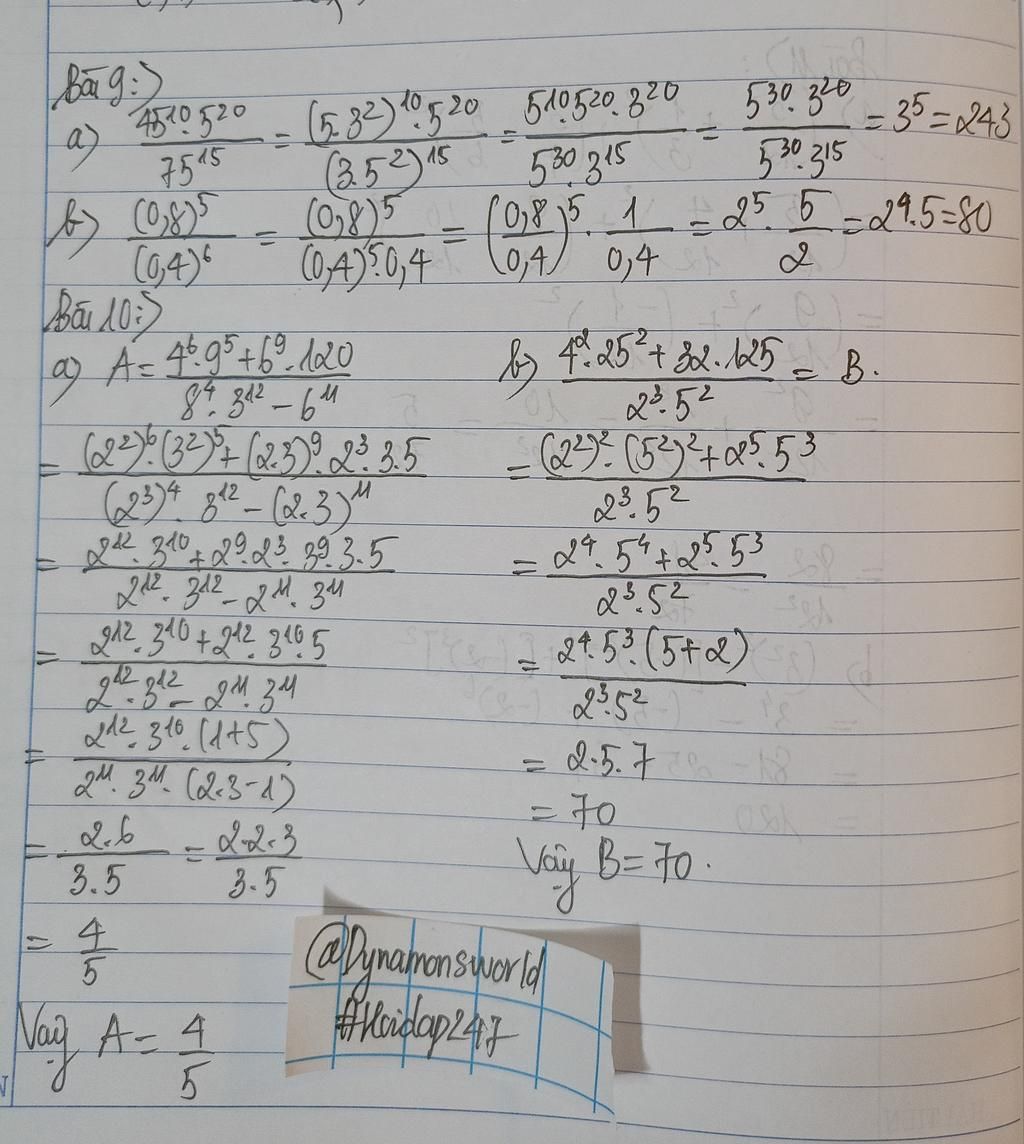 Bài 9:)
a) \frac{45^{10}.5^{20}}{75^{15}} = \frac{(5.3^2)^{10}.5^{20}}{(3.5^2)^{15}} = \frac{5^{10}.5^{20}.3^{20}}{5^{30}.3^{15}} = \frac{5^{30}.3^{20}}{5^{30}.3^{15}} = 3^5 = 243
b) \frac{(0,8)^5}{(0,4)^6} = \frac{(0,8)^5}{(0,4)^5.0,4} = (\frac{0,8}{0,4})^5 . \frac{1}{0,4} = 2^5 . \frac{5}{2} = 2^4.5 = 80
Bài 10:)
a) A = \frac{4^6.9^5 + 6^9.120}{8^4.3^{12} - 6^{11}}
= \frac{(2^2)^6.(3^2)^5 + (2.3)^9.2^3.3.5}{(2^3)^4.3^{12} - (2.3)^{11}}
= \frac{2^{12}.3^{10} + 2^9.2^3.3^9.3.5}{2^{12}.3^{12} - 2^{11}.3^{11}}
= \frac{2^{12}.3^{10} + 2^{12}.3^{10}.5}{2^{12}.3^{12} - 2^{11}.3^{11}}
= \frac{2^{12}.3^{10}.(1+5)}{2^{11}.3^{11}.(2.3-1)}
= \frac{2.6}{3.5} = \frac{2.2.3}{3.5}
= \frac{4}{5}
Vậy A = \frac{4}{5}
b) \frac{4^2.25^2 + 32.125}{2^3.5^2} = B.
= \frac{(2^2)^2.(5^2)^2 + 2^5.5^3}{2^3.5^2}
= \frac{2^4.5^4 + 2^5.5^3}{2^3.5^2}
= \frac{2^4.5^3.(5+2)}{2^3.5^2}
= 2.5.7
= 70
Vậy B = 70.
@Dynamonsworld
#Hoidap247